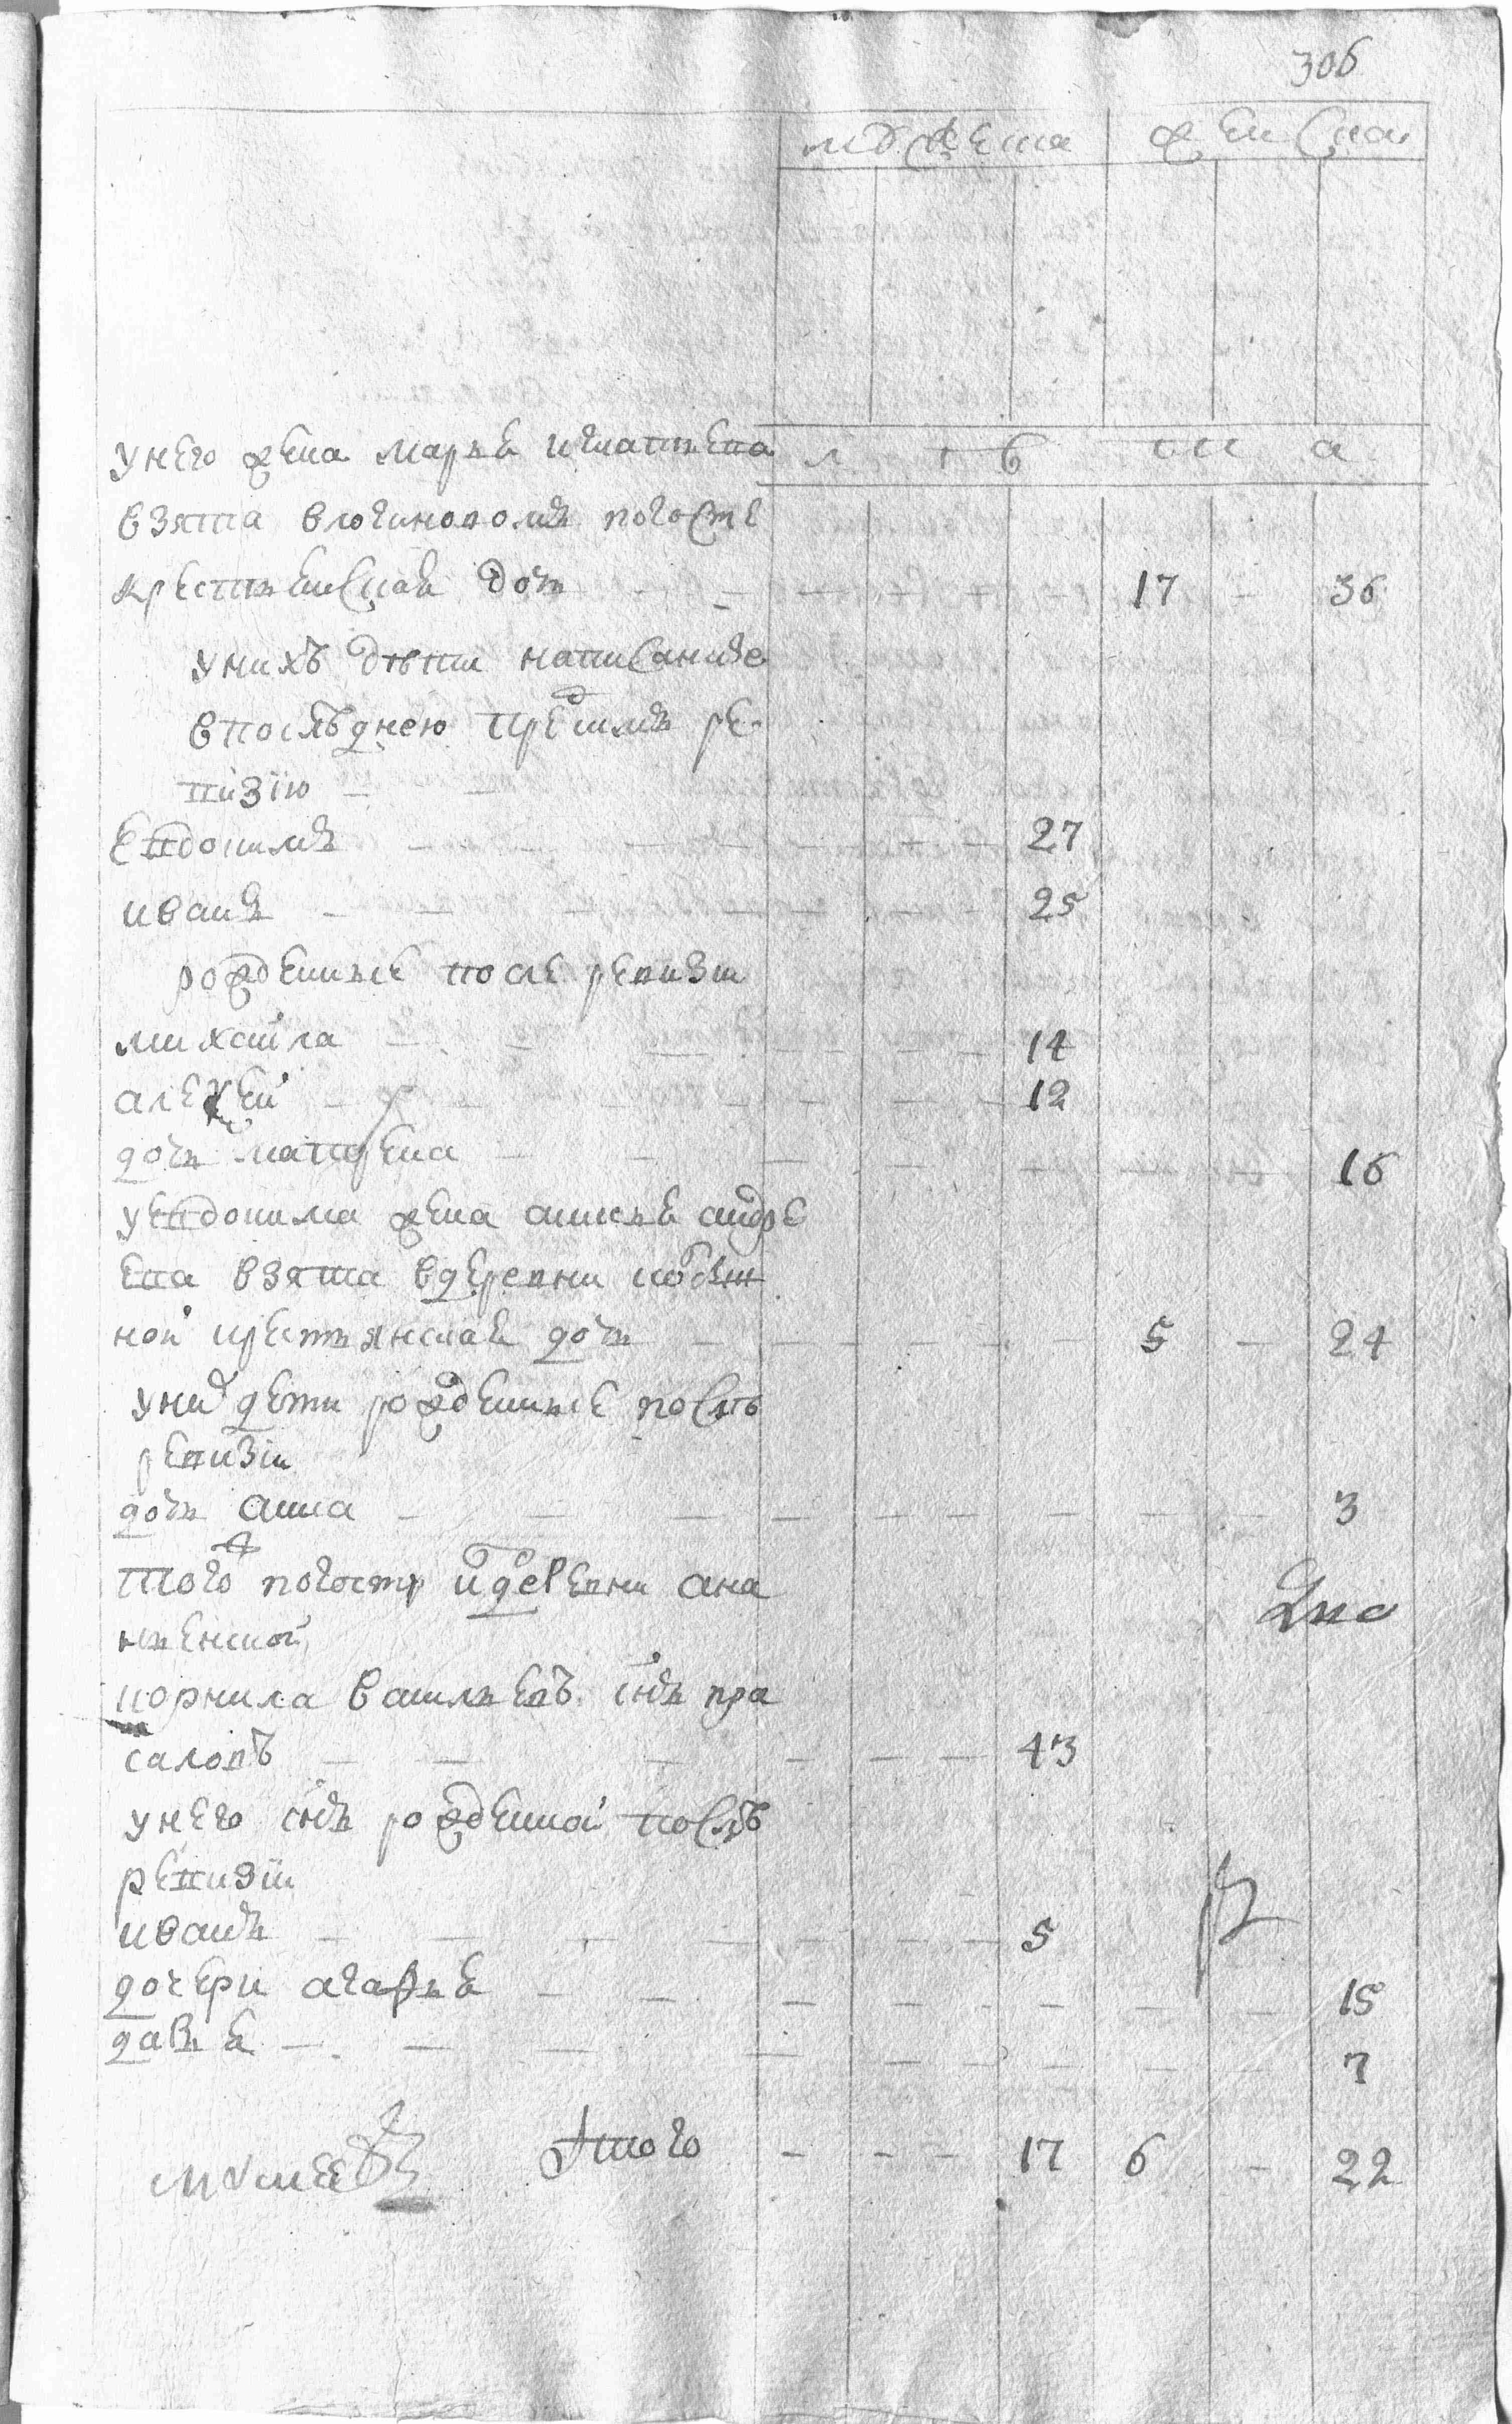 306
мужеска женска
у него жена марья игнатьева
взята в логиновомъ погосте
крестьянская доч 17 - 36
у нихъ дѣти написание
в последнею прешедшмъ ре
визїю
Евдокимъ 27
иванъ 25
рожденные после ревизїи
михаила 14
алеѯей 12
дочь матрена 16
у евдокима жена аксинья андре
ева взята в деревни
ной крестьянская дочь 5 - 24
у них дети рожденные послѣ
ревизїи
дочь анна 3
того ж погоста деревни ана
ньенской
корнила васильевъ снъ пра
саловъ 43
у него снъ рожденной послѣ
ревизїи
иванъ 5
дочери агафья 15
дарья 7
Итого 17 6 - 22